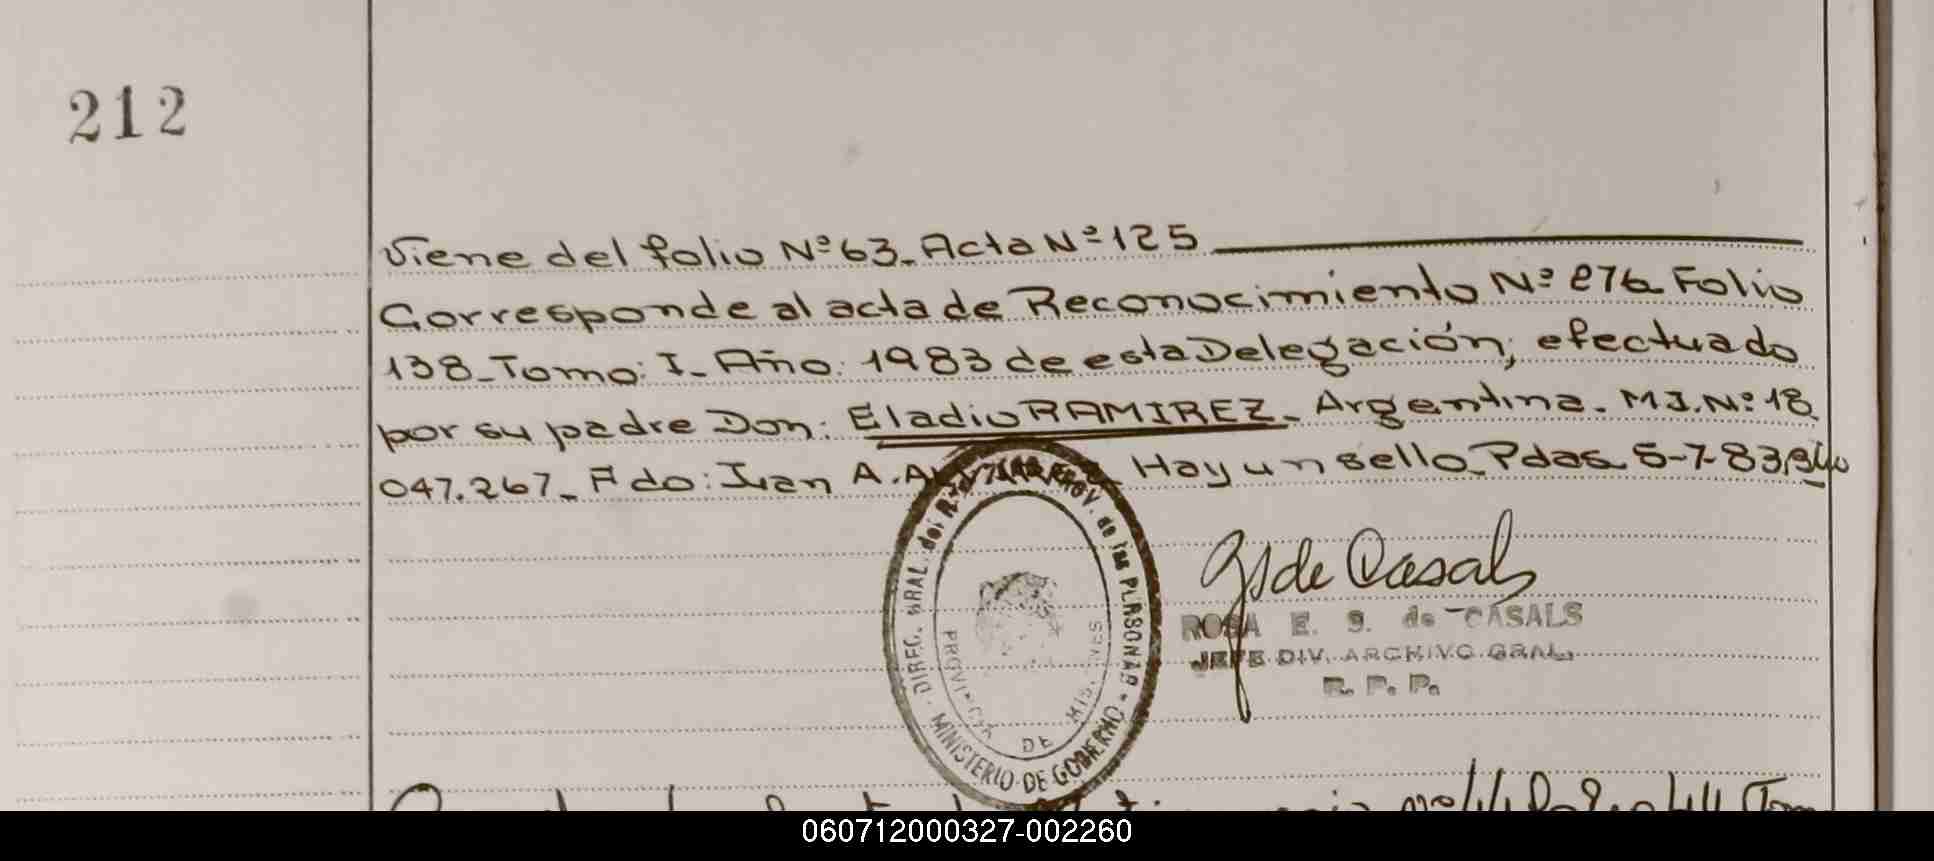 212
Viene del folio Nº 63_ Acta Nº 125
Corresponde al acta de Reconocimiento Nº 276 Folio
138_ Tomo: I_ Año: 1983 de esta Delegación, efectuado
por su padre Don: Eladio RAMIREZ_ Argentina. M.I. Nº 18
047.267_ Fdo: Juan A. Hay un sello_ Pdas 5-7-83
DIREC. GRAL. del PROV. de las PERSONAS
MINISTERIO DE GOBIERNO
PROVINCIA DE MISIONES
de Casals
ROSA E. S. de CASALS
JEFE DIV. ARCHIVO GRAL.
R. P. P.
060712000327-002260